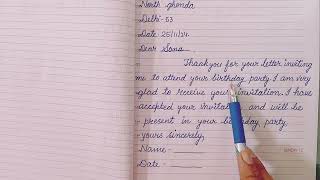 North ghonda
Delhi-53
Date 25/11/24
Dear Sona
Thank you for your letter inviting
me to attend your birthday party. I am very
glad to receive your invitation. I have
accepted your invitation and will be
present in your birthday party.
yours sincerely,
Name -
Date -